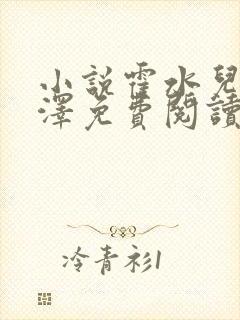 小説霍水兒
澤免費閱讀
冷青衫1